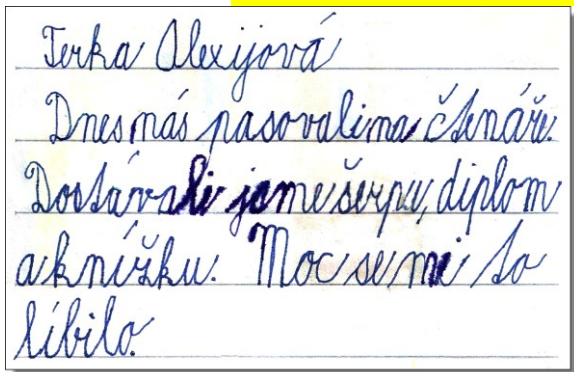 Terka Alexijová
Dnes nás pasovali na čtenáře.
Dostávali jsme šerpu, diplom
a knížku. Moc se mi to
líbilo.